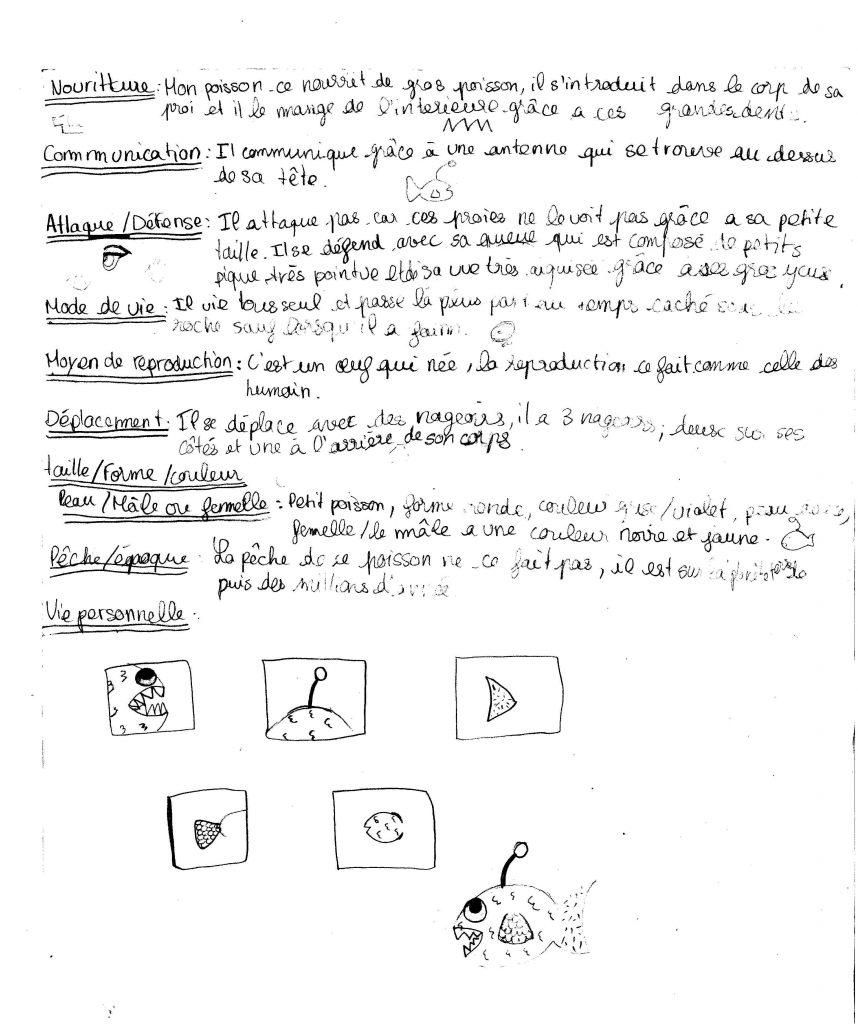 Nouritture : Mon poisson ce nourrit de gros poisson, il s'introduit dans le corp de sa
proi et il le mange de l'interieure grâce a ces grandes dents.
Communication : Il communique grâce à une antenne qui se trouve au dessus
de sa tête.
Attaque / Défense : Il attaque pas car ces proies ne le voit pas grâce a sa petite
taille. Il se défend avec sa queue qui est composé de petits
pique très pointue et de sa vue très aiguisée grâce à ses gros yeux.
Mode de vie : Il vie tous seul et passe la plus part du temps caché sous
roche sauf lorsqu'il a faim.
Moyen de reproduction : C'est un œuf qui née, la reproduction ce fait comme celle des
humain.
Déplacement : Il se déplace avec des nageoirs, il a 3 nageoirs, deux sur ses
côtés et une à l'arrière de son corps.
taille / Forme / couleur
Peau / Mâle ou femelle : Petit poisson, forme ronde, couleur grise / violet, peau
femelle / le mâle a une couleur noire et jaune.
Pêche / époque : La pêche de ce poisson ne ce fait pas, il est sur
puis des millions d'année
Vie personnelle :